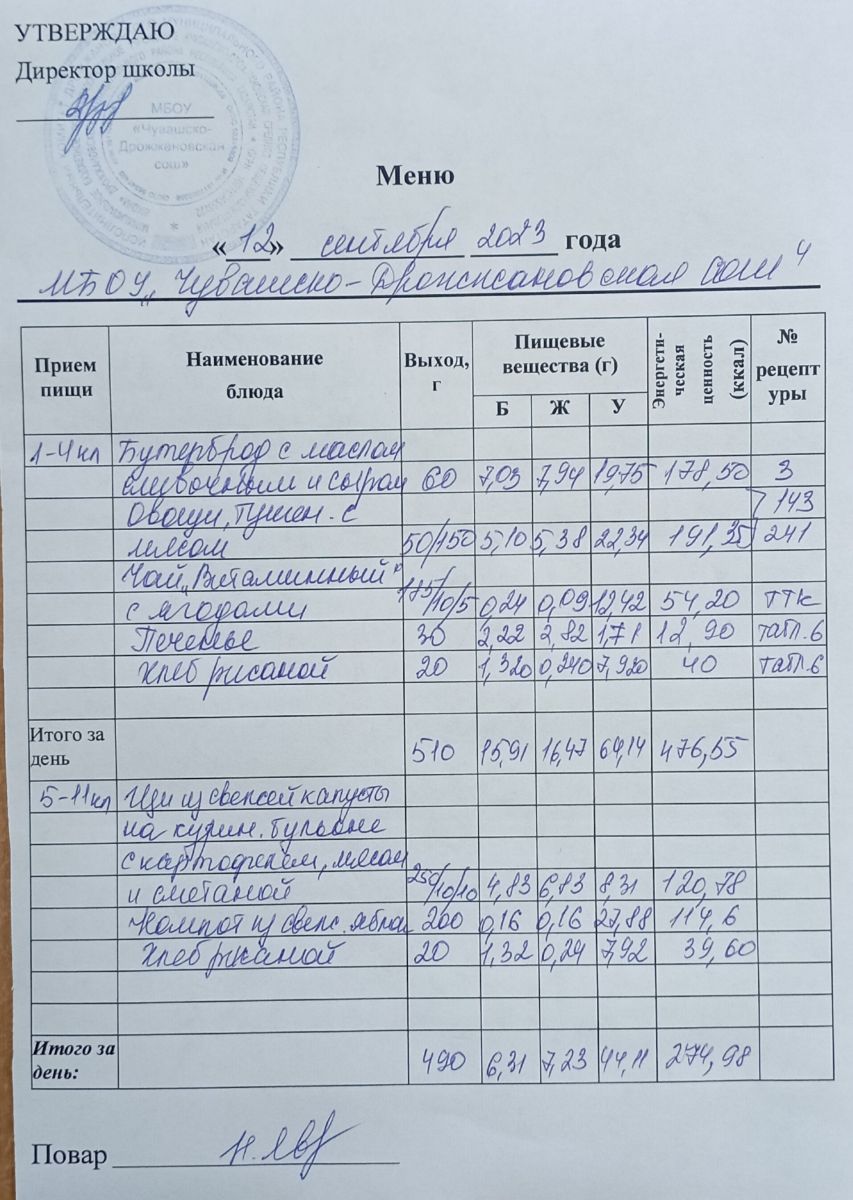 УТВЕРЖДАЮ
Директор школы
МБОУ
«Чувашско-
Дрожжановская
сош»
Меню
« 12 » сентября 2023 года
МБОУ „Чувашско-Дрожжановская сош"
Прием пищи Наименование блюда Выход, г Пищевые вещества (г) Энергети-ческая ценность (ккал) № рецептуры
Б Ж У
1-4кл Бутерброд с маслом
сливочным и сыром 60 7,03 7,94 19,75 178,50 3
Овощи, тушен. с 143
мясом 50/150 5,10 5,38 22,34 191,35 241
Чай „Витаминный"
с ягодами 175/10/5 0,24 0,09 12,42 54,20 ТТК
Печенье 30 2,22 2,82 1,71 12,90 табл.6
Хлеб ржаной 20 1,320 0,240 7,920 40 табл.6
Итого за день 510 15,91 16,47 64,14 476,55
5-11кл Щи из свежей капусты
на курин. бульоне
с картофелем, мясом
и сметаной 250/10/10 4,83 6,83 8,31 120,78
Компот из свеж. яблок 200 0,16 0,16 27,88 114,6
Хлеб ржаной 20 1,32 0,24 7,92 39,60
Итого за день: 490 6,31 7,23 44,11 274,98
Повар